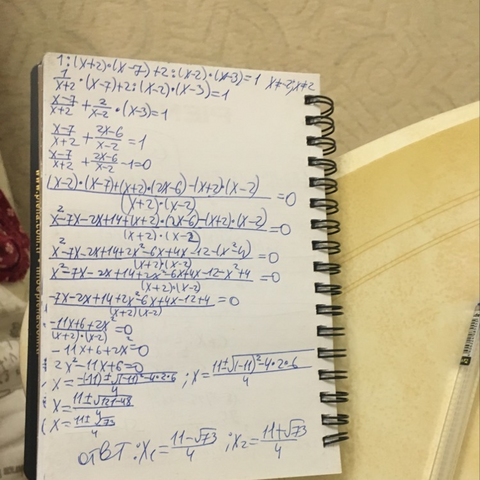 1:(x+2)·(x-7)+2:(x-2)·(x-3)=1 x≠-2; x≠2
1/(x+2)·(x-7)+2:(x-2)·(x-3)=1
(x-7)/(x+2)+2/(x-2)·(x-3)=1
(x-7)/(x+2)+(2x-6)/(x-2)=1
(x-7)/(x+2)+(2x-6)/(x-2)-1=0
((x-2)·(x-7)+(x+2)·(2x-6)-(x+2)·(x-2))/((x+2)·(x-2))=0
(x²-7x-2x+14+(x+2)·(2x-6)-(x+2)·(x-2))/((x+2)·(x-2))=0
(x²-7x-2x+14+2x²-6x+4x-12-(x²-4))/((x+2)(x-2))=0
(x²-7x-2x+14+2x²-6x+4x-12-x²+4)/((x+2)·(x-2))=0
(-7x-2x+14+2x²-6x+4x-12+4)/((x+2)(x-2))=0
(-11x+6+2x²)/((x+2)·(x-2))=0
-11x+6+2x²=0
2x²-11x+6=0
x=(-(-11)±√((-11)²-4·2·6))/4; x=(11±√((-11)²-4·2·6))/4
x=(11±√(121-48))/4
x=(11±√73)/4
ответ: x₁=(11-√73)/4; x₂=(11+√73)/4